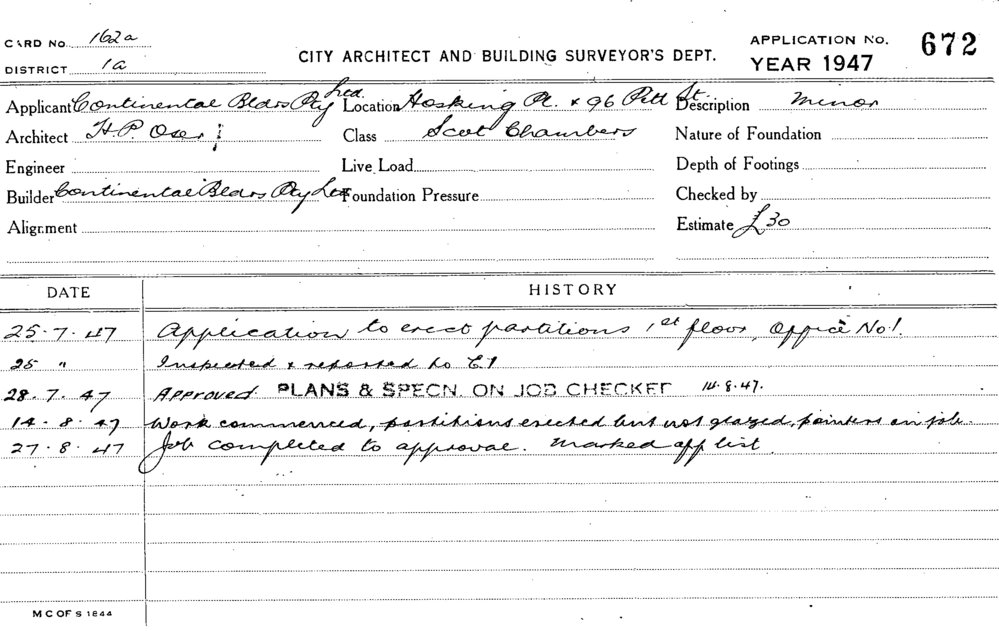 CARD No. 162a
DISTRICT 1a
CITY ARCHITECT AND BUILDING SURVEYOR'S DEPT.
APPLICATION No. 672
YEAR 1947
Applicant Continental Bldrs Pty Ltd. Location Hosking Pl. & 96 Pitt St. Description Minor
Architect H.P. Oser Class Scot Chambers Nature of Foundation
Engineer Live Load Depth of Footings
Builder Continental Bldrs Pty Ltd Foundation Pressure Checked by
Alignment Estimate £30
DATE HISTORY
25.7.47 Application to erect partitions 1st floor, Office No1.
25 " Inspected & reported to
28.7.47 Approved. PLANS & SPECN. ON JOB CHECKED 14.8.47.
14.8.47 Work commenced, partitions erected but not glazed, painters on job.
27.8.47 Job completed to approval. Marked off list
M C OF S 1844